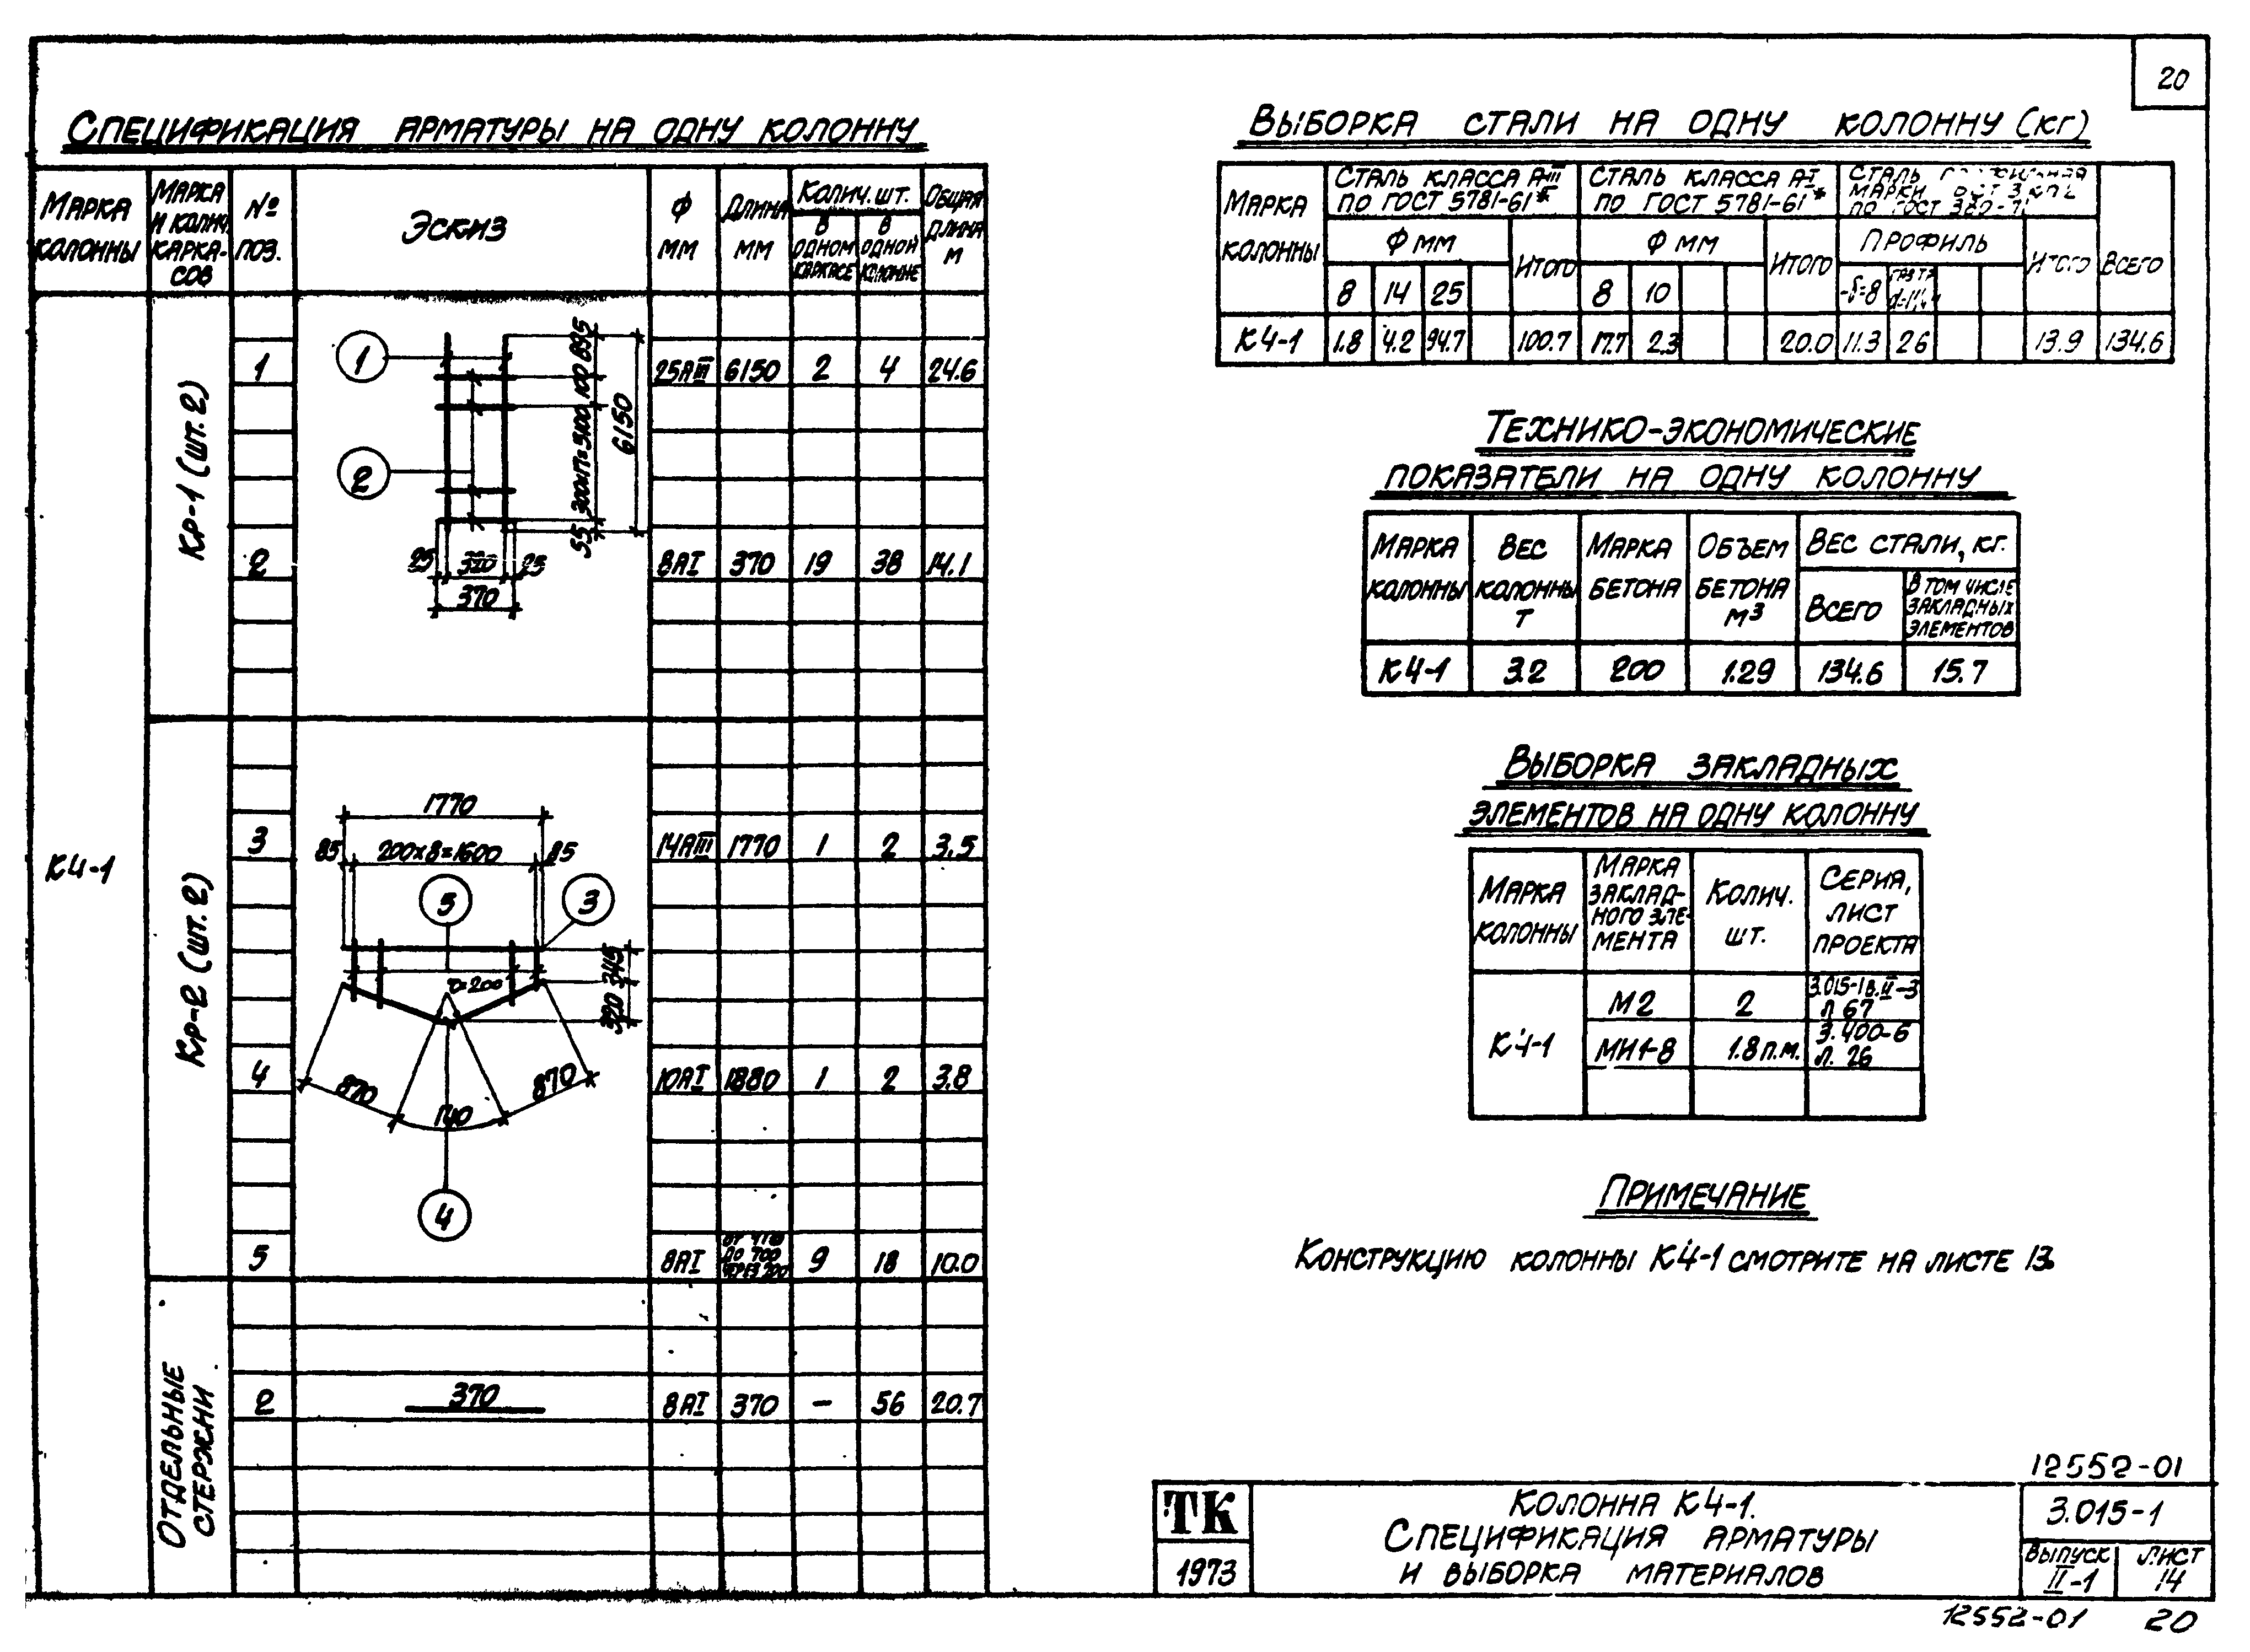 20
Спецификация арматуры на одну колонну
Марка колонны
Марка и колич. каркасов
№ поз.
Эскиз
Ф мм
Длина мм
Колич. шт.
в одном каркасе
в одной колонне
Общая длина м
К4-1
Кр-1 (шт. 2)
1
2
895
100
300х17=5100
55
6150
25
320
25
370
1 25АIII 6150 2 4 24.6
2 8АI 370 19 38 14.1
Кр-2 (шт. 2)
1770
85
200х8=1600
85
5
3
345
320
870
140
870
4
3 14АIII 1770 1 2 3.5
4 10АI 1880 1 2 3.8
5 8АI до 700 через 200 9 18 10.0
Отдельные стержни
2 370 8АI 370 – 56 20.7
Выборка стали на одну колонну (кг)
Марка колонны
Сталь класса А-III по ГОСТ 5781-61*
Сталь класса А-I по ГОСТ 5781-61*
Сталь
марки
по ГОСТ
Ф мм
Итого
Ф мм
Итого
Профиль
Итого
Всего
8 14 25 8 10 -δ=8
К4-1 1.8 4.2 94.7 100.7 17.7 2.3 20.0 11.3 26 13.9 134.6
Технико-экономические
показатели на одну колонну
Марка колонны
Вес колонны т
Марка бетона
Объем бетона м³
Вес стали, кг.
Всего
В том числе закладных элементов
К4-1 3.2 200 1.29 134.6 15.7
Выборка закладных
элементов на одну колонну
Марка колонны
Марка закладного элемента
Колич. шт.
Серия, лист проекта
К4-1
М2 2 3.015-1 в.II-3 л 67
МИ1-8 1.8 п.м. 3.400-6 л. 26
Примечание
Конструкцию колонны К4-1 смотрите на листе 13.
12552-01
ТК
1973
Колонна К4-1.
Спецификация арматуры
и выборка материалов
3.015-1
Выпуск II-1
Лист 14
12552-01 20